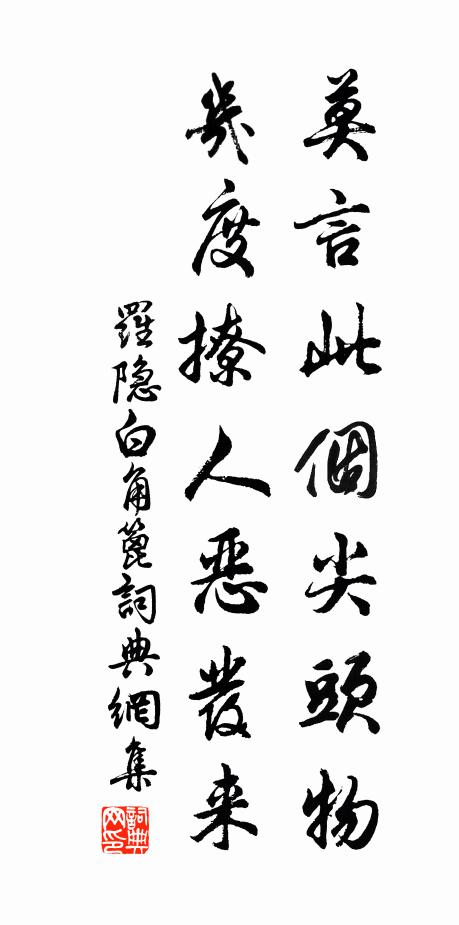 莫言此個尖頭物
幾度撩人恶發来
羅隐白角篦詞典網集
詞典网印